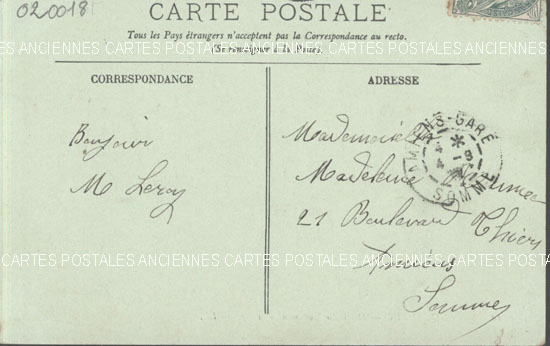 020018
CARTE POSTALE
Tous les Pays étrangers n'acceptent pas la Correspondance au recto.
(Se renseigner à la Poste).
CARTES POSTALES ANCIENNES CARTES POSTALES ANCIENNES CARTES POSTALES ANCIENNES
CORRESPONDANCE
ADRESSE
Bonjour
M Leroy
Mademoiselle
Madeleine
21 Boulevard Thiers
Amiens
Somme
AMIENS-GARE
SOMME
CARTES POSTALES ANCIENNES CARTES POSTALES ANCIENNES CARTES POSTALES ANCIENNES